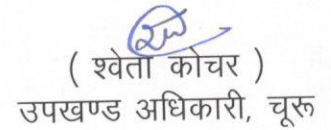 ( श्वेता कोचर )
उपखण्ड अधिकारी, चूरू